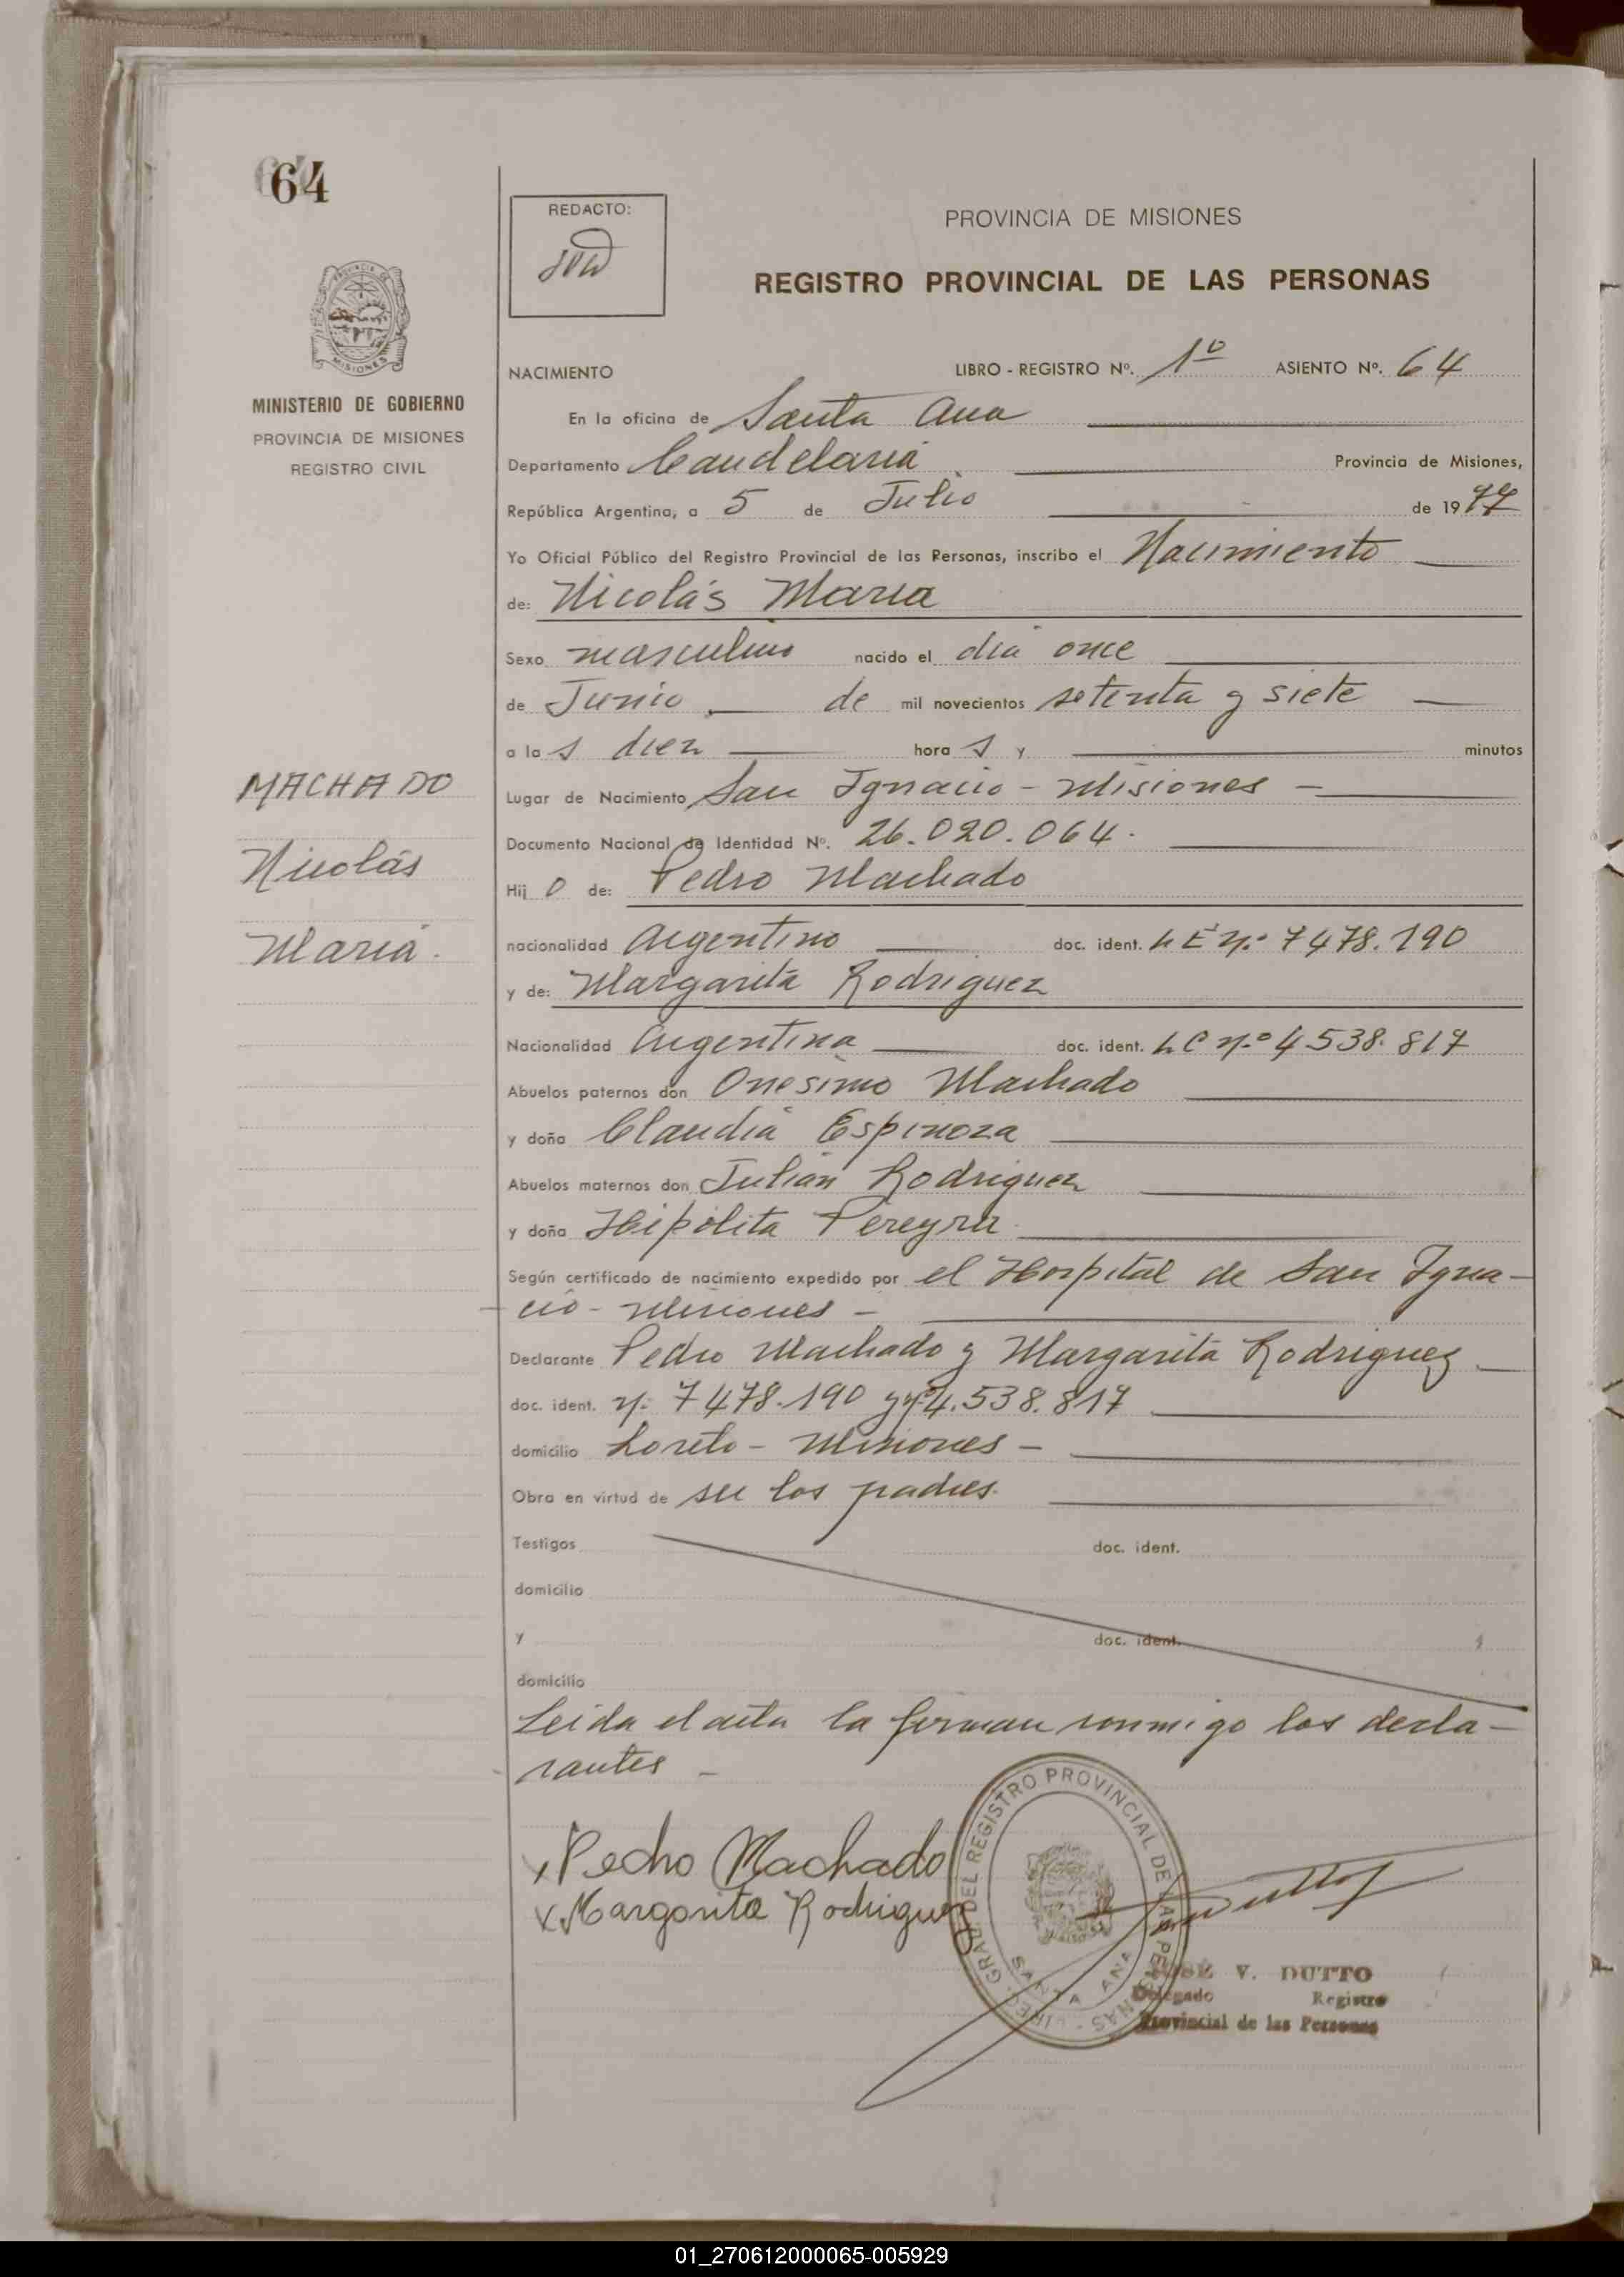 64
REDACTO:
PROVINCIA DE MISIONES
REGISTRO PROVINCIAL DE LAS PERSONAS
MINISTERIO DE GOBIERNO
PROVINCIA DE MISIONES
REGISTRO CIVIL
NACIMIENTO LIBRO - REGISTRO Nº. 1º ASIENTO Nº. 64
En la oficina de Santa Ana
Departamento Candelaria Provincia de Misiones,
República Argentina, a 5 de Julio de 1977
Yo Oficial Público del Registro Provincial de las Personas, inscribo el Nacimiento
de: Nicolás María
Sexo masculino nacido el día once
de Junio de mil novecientos setenta y siete
a las diez horas y minutos
MACHADO
Nicolás
María.
Lugar de Nacimiento San Ignacio - Misiones -
Documento Nacional de Identidad Nº. 26.020.064.
Hijo de: Pedro Machado
nacionalidad Argentino doc. ident. L E Nº 7478.190
y de: Margarita Rodriguez
Nacionalidad Argentina doc. ident. L C Nº 4538.817
Abuelos paternos don Onesimo Machado
y doña Claudia Espinoza
Abuelos maternos don Julian Rodriguez
y doña Hipólita Pereyra
Según certificado de nacimiento expedido por el Hospital de San Igna-
cio - Misiones -
Declarante Pedro Machado y Margarita Rodriguez
doc. ident. Nº 7478.190 y Nº 4.538.817
domicilio Loreto - Misiones -
Obra en virtud de ser los padres.
Testigos doc. ident.
domicilio
y doc. ident.
domicilio
Leida el acta la firman conmigo los decla-
rantes -
Pedro Machado
Margarita Rodriguez
DEL REGISTRO PROVINCIAL DE LAS PERSONAS
SANTA ANA
JOSE V. DUTTO
Delegado Registro
Provincial de las Personas
01_270612000065-005929